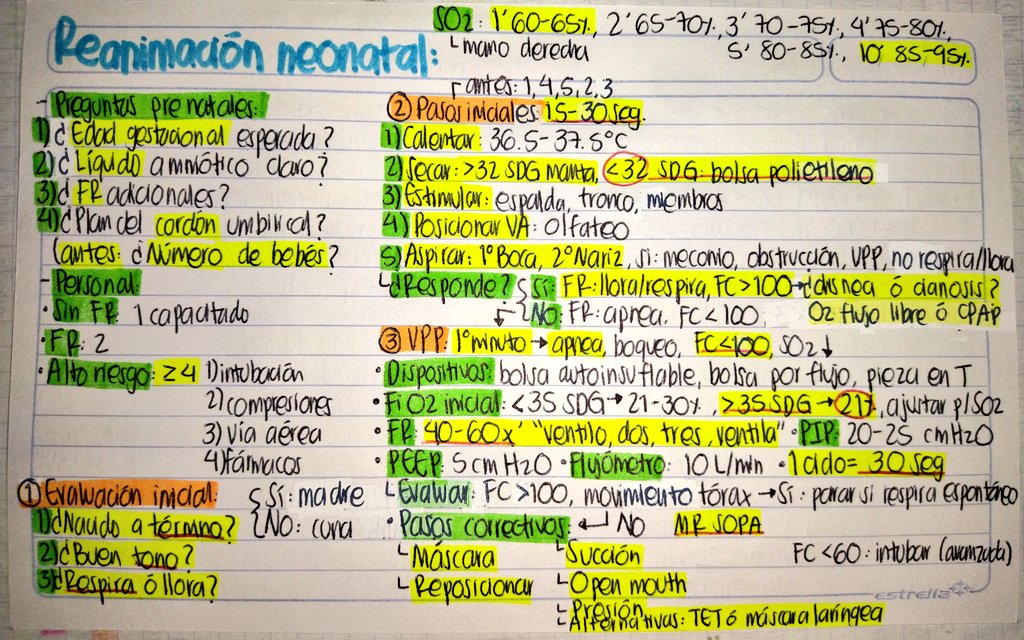 Reanimación neonatal:
SO2: 1' 60-65%, 2' 65-70%, 3' 70-75%, 4' 75-80%,
mano derecha 5' 80-85%, 10' 85-95%
- Preguntas prenatales:
1) ¿Edad gestacional esperada?
2) ¿Líquido amniótico claro?
3) ¿FR adicionales?
4) ¿Plan del cordón umbilical?
(antes: ¿Número de bebés?
- Personal:
• Sin FR: 1 capacitado
• FR: 2
• Alto riesgo: ≥4 1) intubación
2) compresiones
3) vía aérea
4) fármacos
① Evaluación inicial:
1) ¿Nacido a término?
2) ¿Buen tono?
3) ¿Respira ó llora?
Sí: madre
No: cuna
antes: 1,4,5,2,3
② Pasos iniciales: 15-30 seg.
1) Calentar: 36.5-37.5°C
2) Secar: >32 SDG manta, <32 SDG: bolsa polietileno
3) Estimular: espalda, tronco, miembros
4) Posicionar VA: olfateo
5) Aspirar: 1° Boca, 2° Nariz, si: meconio, obstrucción, VPP, no respira/llora
¿Responde? Sí: FR: llora/respira, FC>100 → ¿disnea ó cianosis?
NO: FR: apnea, FC<100 O2 flujo libre ó CPAP
③ VPP: 1° minuto → apnea, boqueo, FC<100, SO2 ↓
• Dispositivos: bolsa autoinsuflable, bolsa por flujo, pieza en T
• FiO2 inicial: <35 SDG → 21-30%, ≥35 SDG → 21%, ajustar p/SO2
• FR: 40-60x' "ventilo, dos, tres, ventila" • PIP: 20-25 cmH2O
• PEEP: 5 cmH2O • Flujómetro: 10 L/min • 1 ciclo = 30 seg
Evaluar: FC>100, movimiento tórax → Sí: parar si respira espontáneo
• Pasos correctivos: ← NO MR SOPA
Máscara
Reposicionar
Succión
Open mouth
Presión
Alternativas: TET ó máscara laríngea
FC<60: intubar (avanzada)
estrella